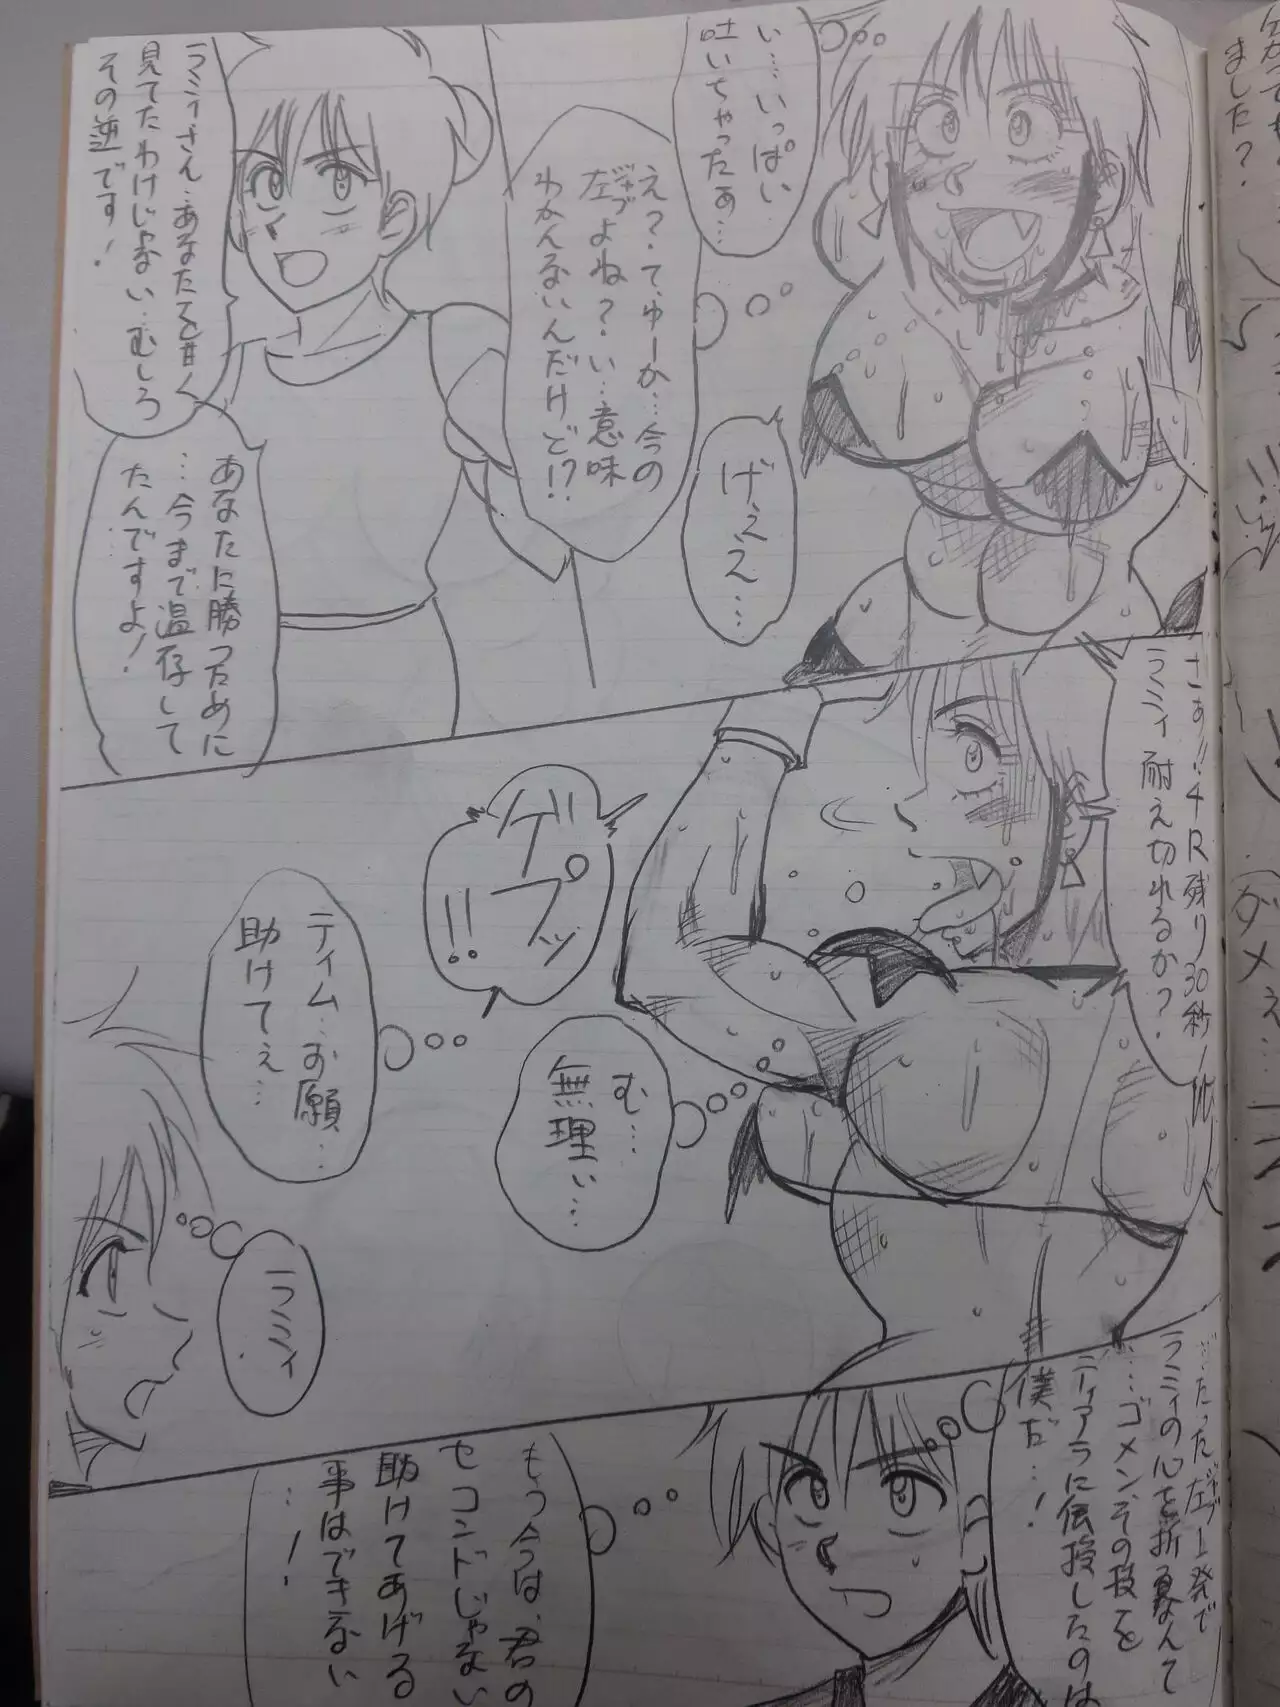 い…いっぱい
吐いちゃったぁ…
え？て、ゆーか…今の
左よね？い…意味
わかんないんだけど!?
げぇえ…
ラミィさん…あなたを甘く
見てたわけじゃない…むしろ
その逆です！
あなたに勝つために
…今まで温存して
たんですよ！
さぁ!!4R残り30秒！
ラミィ耐え切れるか？
ゲプッ!!
む…
無理ぃ…
ティム…お願…
助けてぇ…
ラミィ
…たった左ジャブ一発で
ラミィの心を折るなんて
…ゴメン、その技を
ティアラに伝授したのは
僕だ…！
もう今は、君の
セコンドじゃない
助けてあげる
事はできない
…！
ました？
ダメぇ…